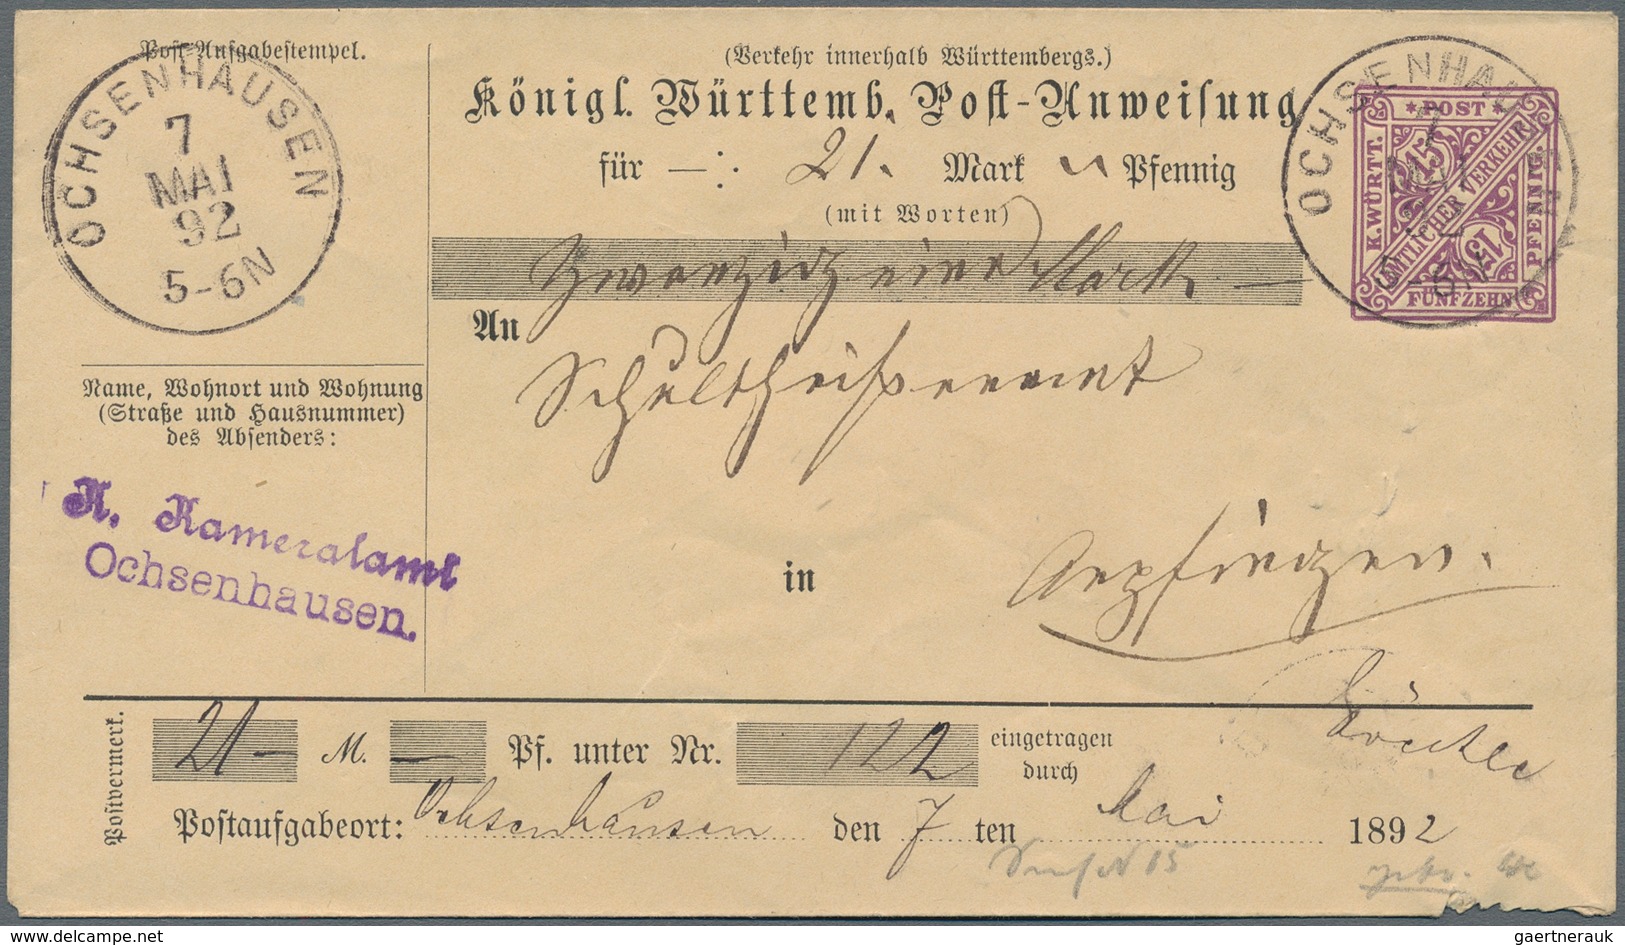 Post-Aufgabestempel.
OCHSENHAUSEN
7
MAI
92
5-6N
(Verkehr innerhalb Württembergs.)
Königl. Württemb. Post-Anweisung
für —: 21. Mark Pfennig
(mit Worten)
Zwanzig eine Mark
OCHSENHAUSEN
7
* POST *
K. WÜRTT.
15
AMTLICHER VERKEHR
15
PFENNIG.
FÜNFZEHN
An
Schultheißenamt
in
Name, Wohnort und Wohnung
(Straße und Hausnummer)
des Absenders:
K. Kameralamt
Ochsenhausen.
Postvermerk.
21 — M. — Pf. unter Nr. 122 eingetragen
durch
Postaufgabeort: Ochsenhausen den 7 ten Mai 1892
delcampe.net
gaertnerauk